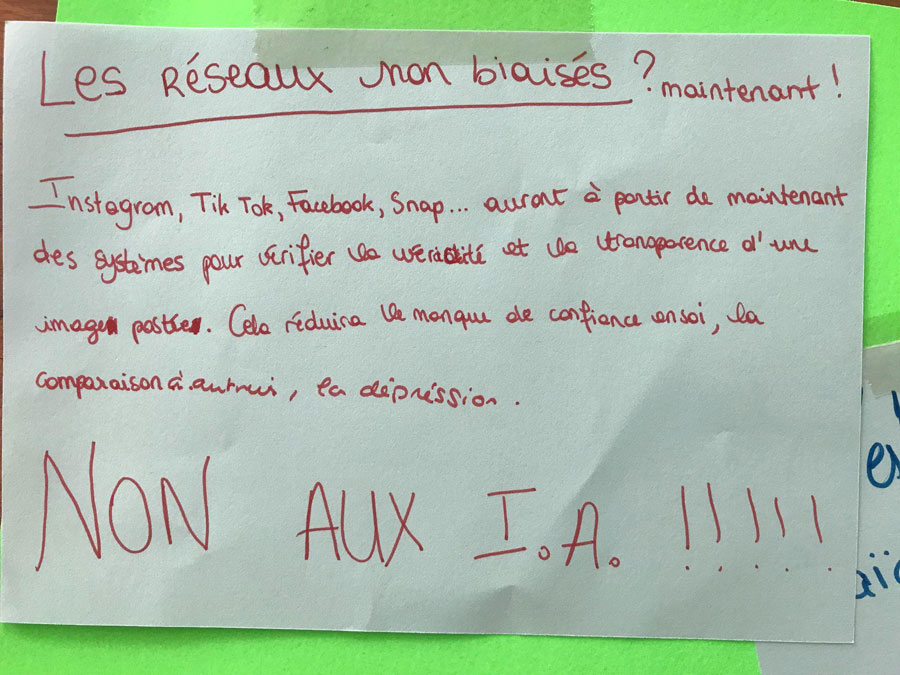 Les réseaux non biaisés ? maintenant !
Instagram, Tik Tok, Facebook, Snap... auront à partir de maintenant
des systèmes pour vérifier la véracité et la transparence d'une
image postée. Cela réduira le manque de confiance en soi, la
comparaison à autrui, la dépréssion.
NON AUX I.A. !!!!!